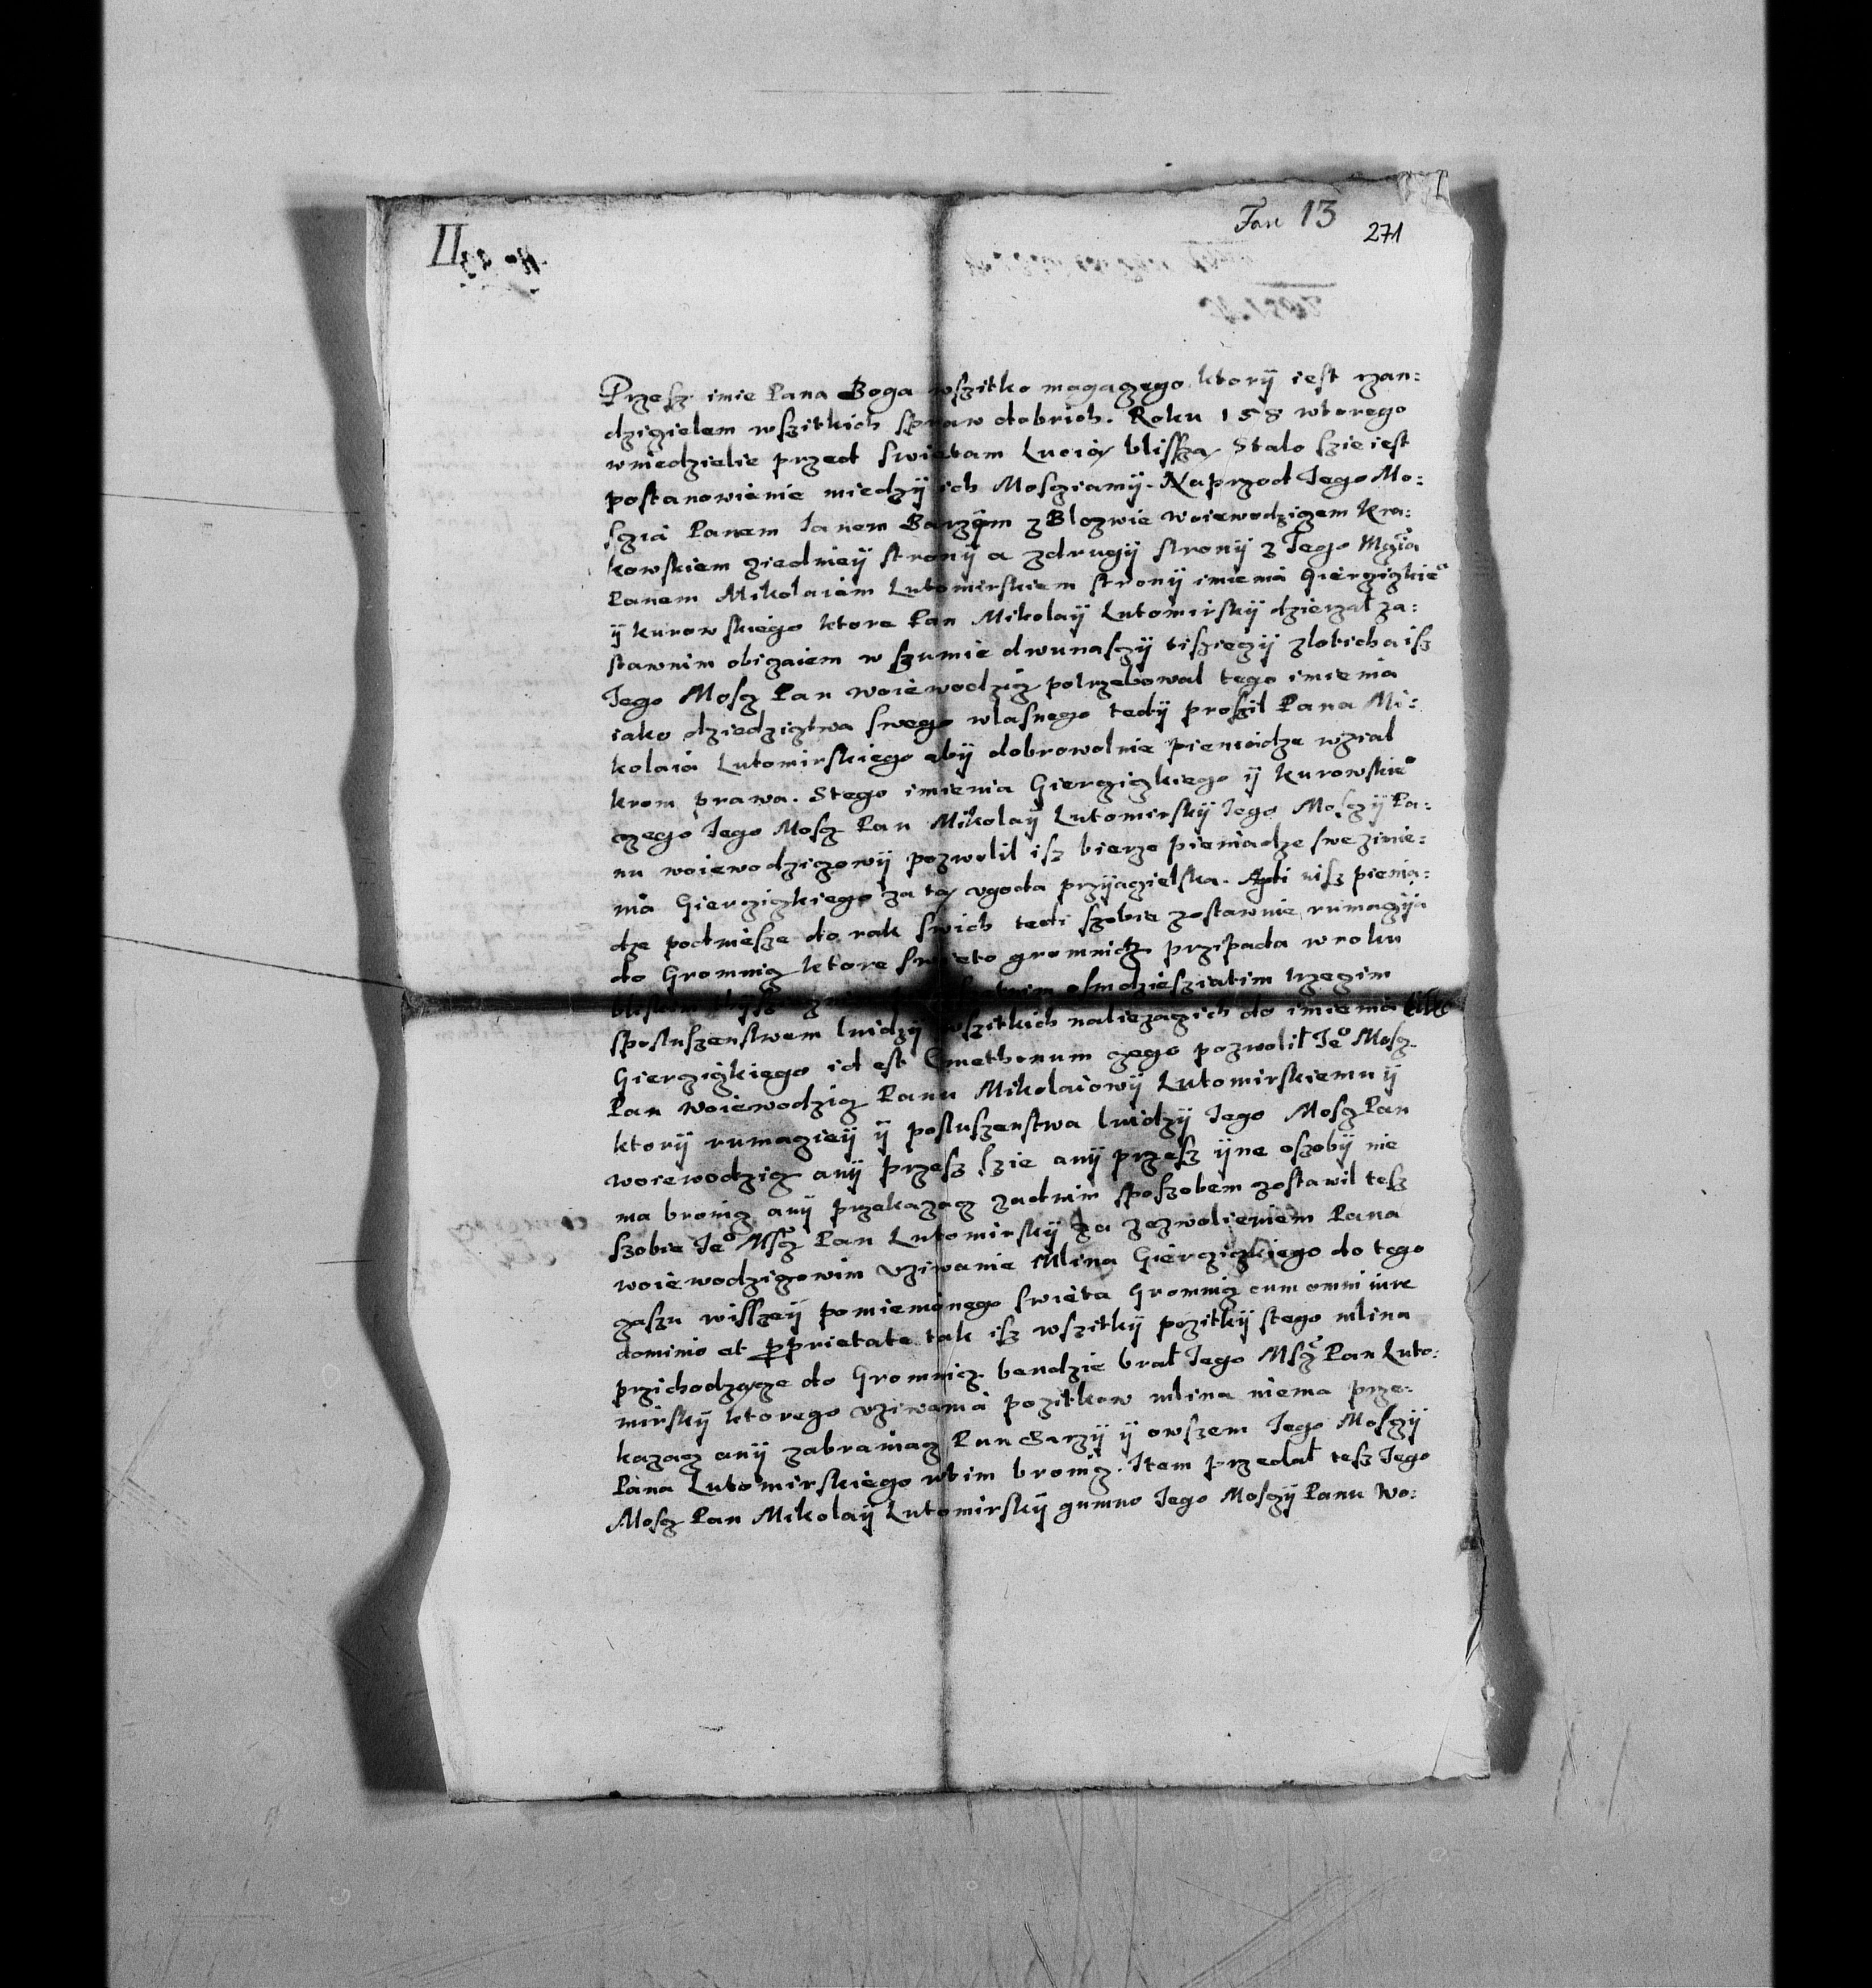 II
Fan 13
271
Przesz imie Pana Boga wszitko magaczego ktorÿ iest rzan:
dziczielem wszitkich spraw dobrich. Roku 158 wtorego
wniedzielie przed swietam Lucią blissza Stalo szie iest
postanowienie miedzÿ ich Mosziamÿ. Naprzod Iego Mo:
szia Panem Ianem Barzÿm z Blozwie woiewodziczem Kra:
kowskiem ziedneÿ stronÿ a zdrugÿ stronÿ z Iego Mszia
Panem Mikolaiam Lutomirskiem stronÿ imienia Gierczizkieo
ÿ kurowskiego ktore Pan Mikolaÿ Lutomirskÿ dzierzal za:
stawnim obiczaiem w szumie dwunasczÿ tisziczÿ zlotich a isz
Iego Mosz Pan woiewodzicz potrzebowal tego imienia
iako dziedzictwa swego wlasnego tedÿ proszil Pana Mi:
kolaia Lutomirskiego abÿ dobrowolnie pieniadze wzial
krom prawa. Stego imienia Gierczizkiego ÿ kurowskieo
czego Iego Mosz Pan Mikolaÿ Lutomirskÿ Iego Moszÿ Pa:
nu woiewodziczowÿ pozwolil isz bierze pieniadze swe zimie:
nia Gierczizkiego za ta vgoda przÿaczielska. A nisz pienia:
dze podniesze do rak swich tedi szobie zostawuie rumaczÿa
do Gromnicz ktore swieto gromnicz przipada wroku
osmdziesziatim trzeczim
sposluszenstwem ludzÿ wszitkich naliezaczich do imienia
Gierczizkiego id est Cmethonum czego pozwolil Ieo Mosz
Pan woiewodzicz Panu Mikolaiowÿ Lutomirskiemu ÿ
ktorÿ rumaczieÿ ÿ posluszenstwa ludzÿ Iego Mosz Pan
woiewodzicz anÿ przesz szie anÿ przesz ÿne oszobÿ nie
ma bronicz anÿ przekazacz zadnim sposzobem zostawil tesz
szobie Ieo Msz Pan Lutomirskÿ za zezwolieniem Pana
woiewodziczowim vziwanie Mlina Gierczizkiego do tego
czaszu wisszeÿ pomienionego swieta Gromnicz cum omni iure
dominio et pprietate tak isz wszitkÿ pozitkÿ stego mlina
przichodzacze do Gromnicz bendzie bral Iego Msz Pan Luto:
mirskÿ ktorego vziwania pozitkow mlina niema prze:
kazacz anÿ zabraniacz Pan Barzÿ ÿ owszem Iego Moszÿ
Pana Lutomirskiego wtim bronicz. Item przedal tesz Iego
Mosz Pan Mikolaÿ Lutomirskÿ gumno Iego Moszÿ Panu Wo: